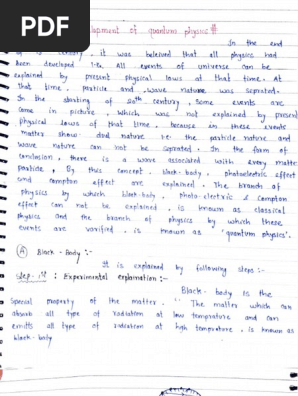 PDF
lopment of quantum physics #
In the end
of 19 century, it was beleived that all physics had
been developed i.e. All events of universe can be
explained by present physical laws at that time. At
that time, particle and wave nature was seprated.
In the starting of 20th century, some events are
come in picture, which was not explained by present
physical laws of that time. because in these events
matter show dual nature i.e. the particle nature and
wave nature can not be seprated. In the form of
conclusion, there is a wave associated with every matter
particle. By this concept, black-body, photoelectric effect
and compton effect are explained. The branch of
physics by which black body, photo-electric & compton
effect can not be explained, is known as classical
physics and the branch of physics by which these
events are varified, is known as 'quantum physics'.
(A) Black-Body :-
It is explained by following steps :-
Step-1st : Experimental explaination :-
Black-body is the
special property of the matter. "The matter which can
absorb all type of radiation at low temprature and can
emitts all type of radiation at high temprature, is known as
black-body